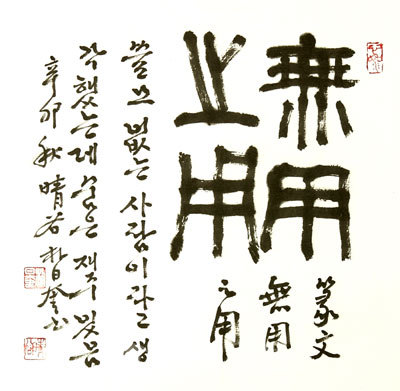 無用
之用
篆文
無用
之用
쓸모 없는 사람이라고 생
각했는데 숨은 재주 있음
辛卯秋 晴谷